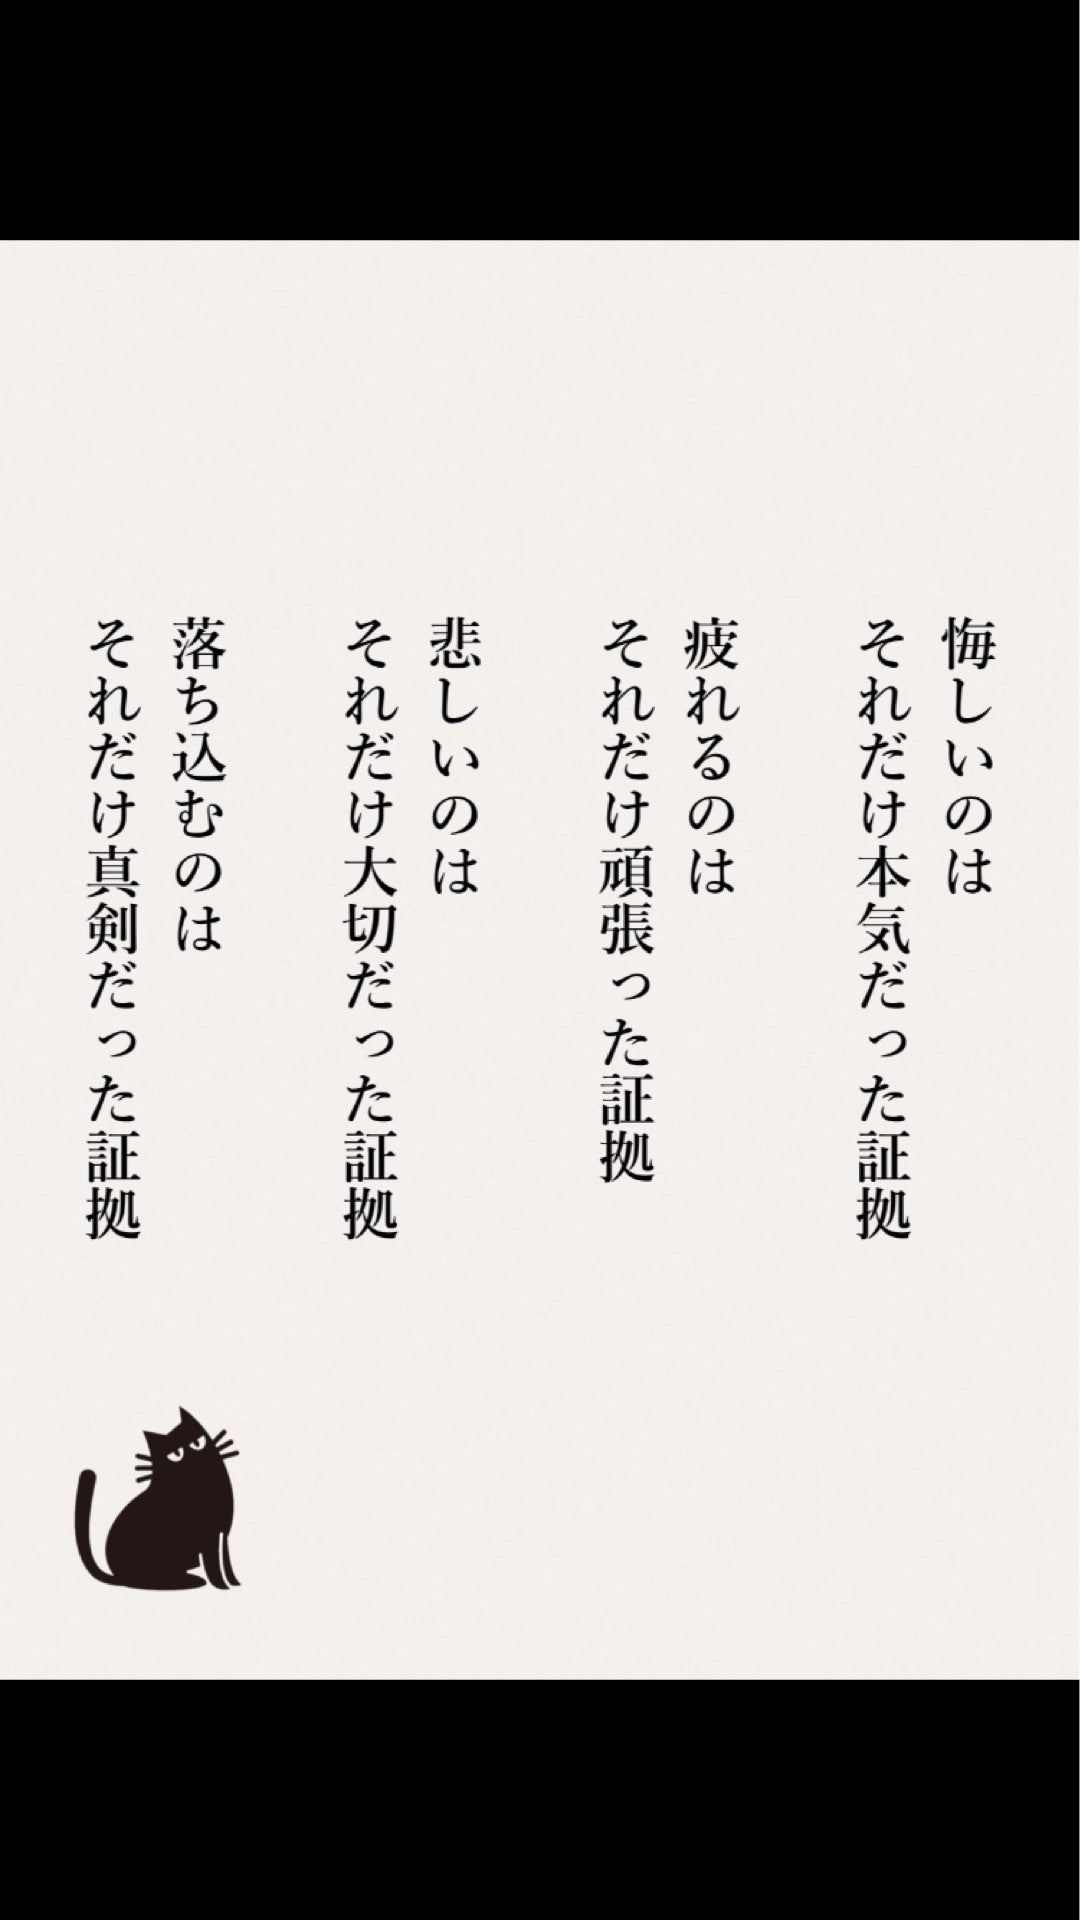 悔しいのは
それだけ本気だった証拠
疲れるのは
それだけ頑張った証拠
悲しいのは
それだけ大切だった証拠
落ち込むのは
それだけ真剣だった証拠